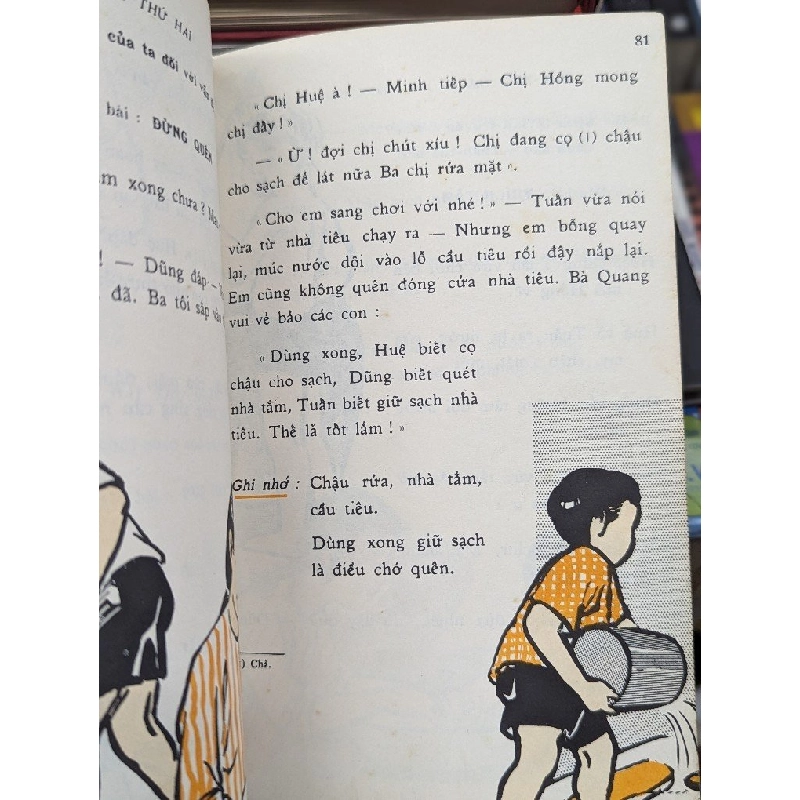 THỨ HAI
của ta đối với
bài : ĐỪNG QUÊN
m xong chưa ?
! — Dũng đáp —
đã. Ba tôi sắp
81
« Chị Huệ à ! — Minh tiếp — Chị Hồng mong
chị đây ! »
— « Ừ ! đợi chị chút xíu ! Chị đang cọ (1) chậu
cho sạch để lát nữa Ba chị rửa mặt ».
« Cho em sang chơi với nhé ! » — Tuấn vừa nói
vừa từ nhà tiêu chạy ra — Nhưng em bỗng quay
lại, múc nước dội vào lỗ cầu tiêu rồi đậy nắp lại.
Em cũng không quên đóng cửa nhà tiêu. Bà Quang
vui vẻ bảo các con :
« Dùng xong, Huệ biết cọ
chậu cho sạch, Dũng biết quét
nhà tắm, Tuấn biết giữ sạch nhà
tiêu. Thế là tốt lắm ! »
Ghi nhớ : Chậu rửa, nhà tắm,
cầu tiêu.
Dùng xong giữ sạch
là điều chớ quên.
) Chà.